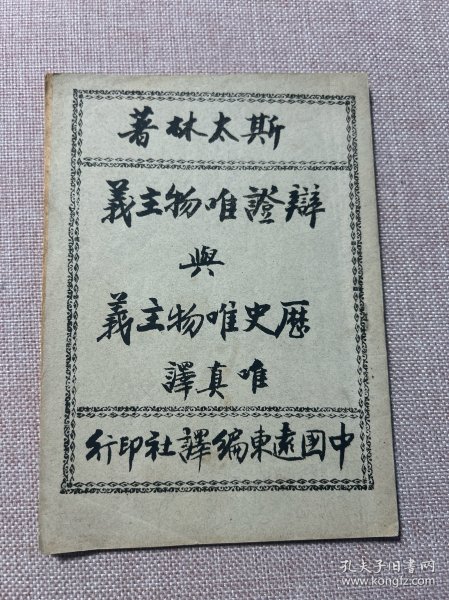 斯太林著
辯證唯物主義
與
歷史唯物主義
唯真譯
中國遠東編譯社印行
孔夫子旧书网
www.kongfz.com